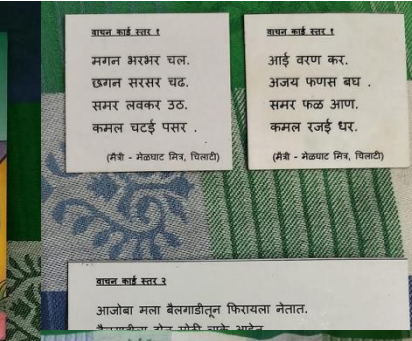 वाचन कार्ड स्तर १
मगन भरभर चल.
छगन सरसर चढ.
समर लवकर उठ.
कमल चटई पसर .
(मैत्री - मेळघाट मित्र, चिलाटी)
वाचन कार्ड स्तर १
आई वरण कर.
अजय फणस बघ .
समर फळ आण.
कमल रजई धर.
(मैत्री - मेळघाट मित्र, चिलाटी)
वाचन कार्ड स्तर २
आजोबा मला बैलगाडीतून फिरायला नेतात.